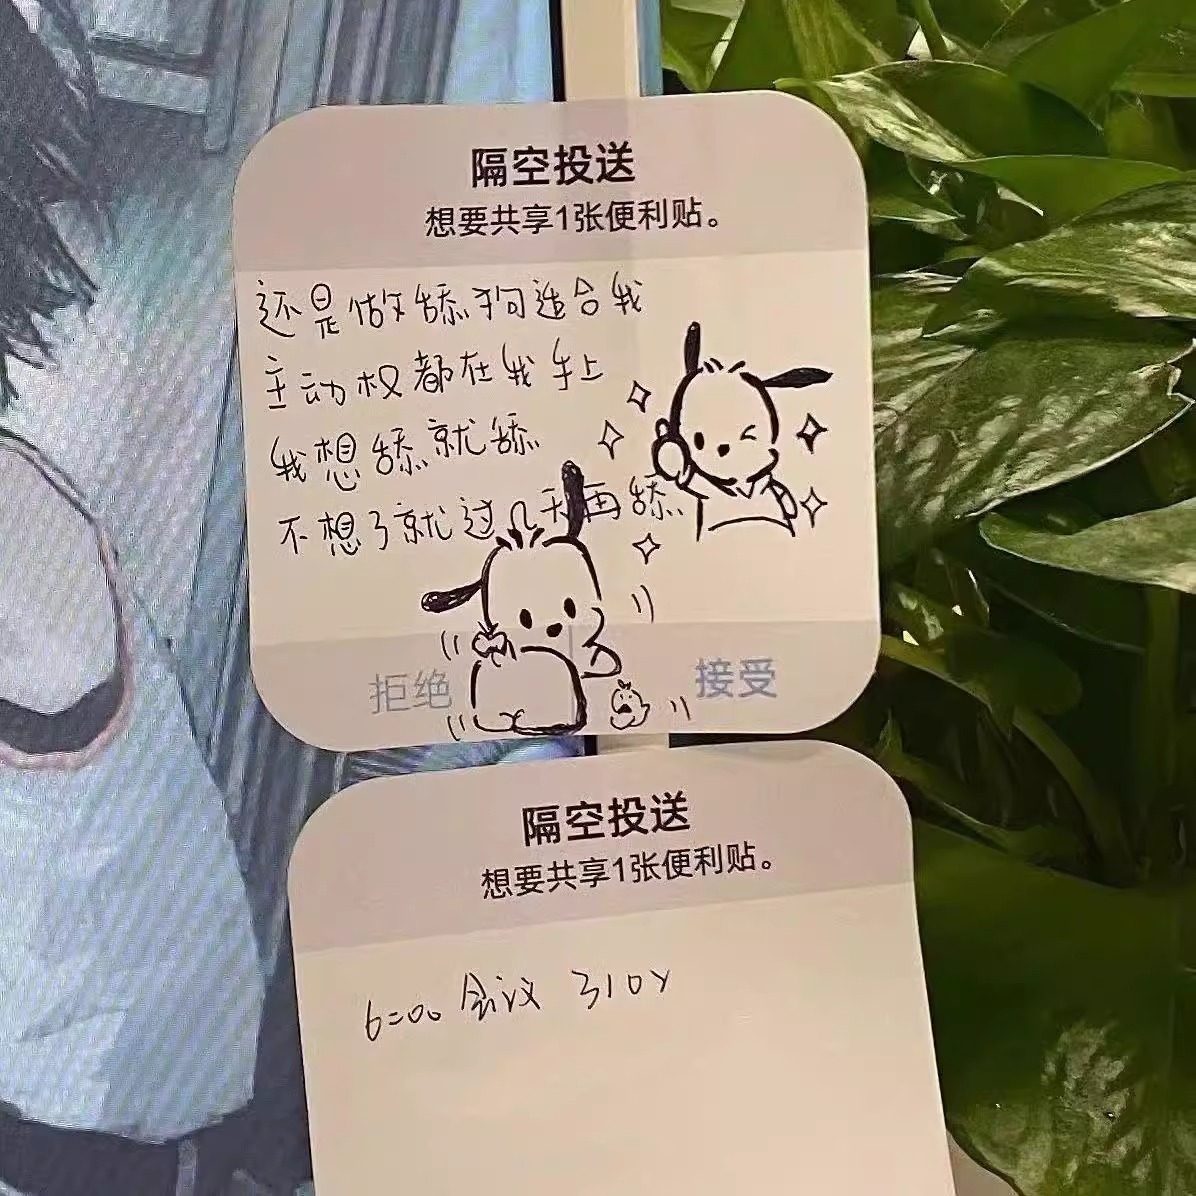 隔空投送
想要共享1张便利贴。
还是做舔狗适合我
主动权都在我手上
我想舔就舔
不想了就过几天再舔
拒绝
接受
隔空投送
想要共享1张便利贴。
6:00 会议 310Y